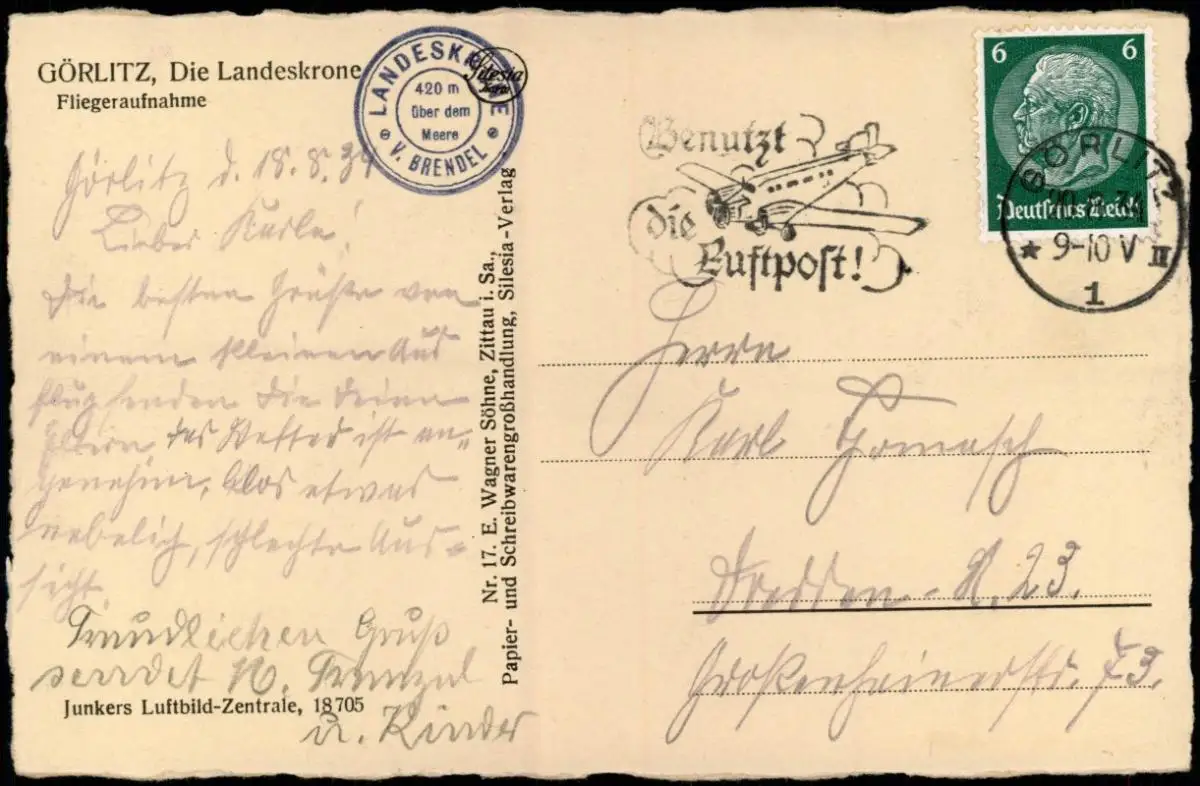 GÖRLITZ, Die Landeskrone
Fliegeraufnahme
LANDESKRONE
420 m
über dem
Meere
V. BRENDEL
Silesia
Karte
Görlitz d. 18.8.34
Lieber Karle!
Die besten Grüße von
einem kleinen Aus
flug senden Dir Deine
Eltern das Wetter ist an=
genehm, blos etwas
nebelich, schlechte Aus=
sicht.
Gruß
sendet
u. Kinder
Junkers Luftbild-Zentrale, 18705
Nr. 17. E. Wagner Söhne, Zittau i. Sa.,
Papier- und Schreibwarengroßhandlung, Silesia-Verlag
Benutzt
die
Luftpost!
6 6
Deutsches Reich
GÖRLITZ
9-10 V
* II
1
Herrn
Karl
Dresden - N. 23.
Großenhainerstr. 73.